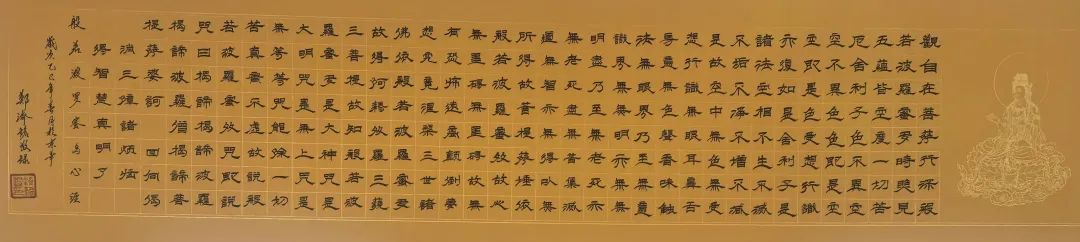 觀自在菩薩行深般
若波羅蜜多時照見
五蘊皆空度一切苦
厄舍利子色不異空
空不異色色即是空
空即是色受想行識
亦復如是舍利子是
諸法空相不生不滅
不垢不淨不增不減
是故空中無色無受
想行識無眼耳鼻舌
身意無色聲香味觸
法無眼界乃至無意
識界無無明亦無無
明盡乃至無老死亦
無老死盡無苦集滅
道無智亦無得以無
所得故菩提薩埵依
般若波羅蜜多故心
無罣礙無罣礙故無
有恐怖遠離顛倒夢
想究竟涅槃三世諸
佛依般若波羅蜜多
故得阿耨多羅三藐
三菩提故知般若波
羅蜜多是大神咒是
大明咒是無上咒是
無等等咒能除一切
苦真實不虛故說般
若波羅蜜多咒即說
咒曰揭諦揭諦波羅
揭諦波羅僧揭諦菩
提薩婆訶 回向偈
消三障諸煩惱
得智慧真明了
般若波羅蜜多心經
歲次乙巳年
鄭濟敬錄